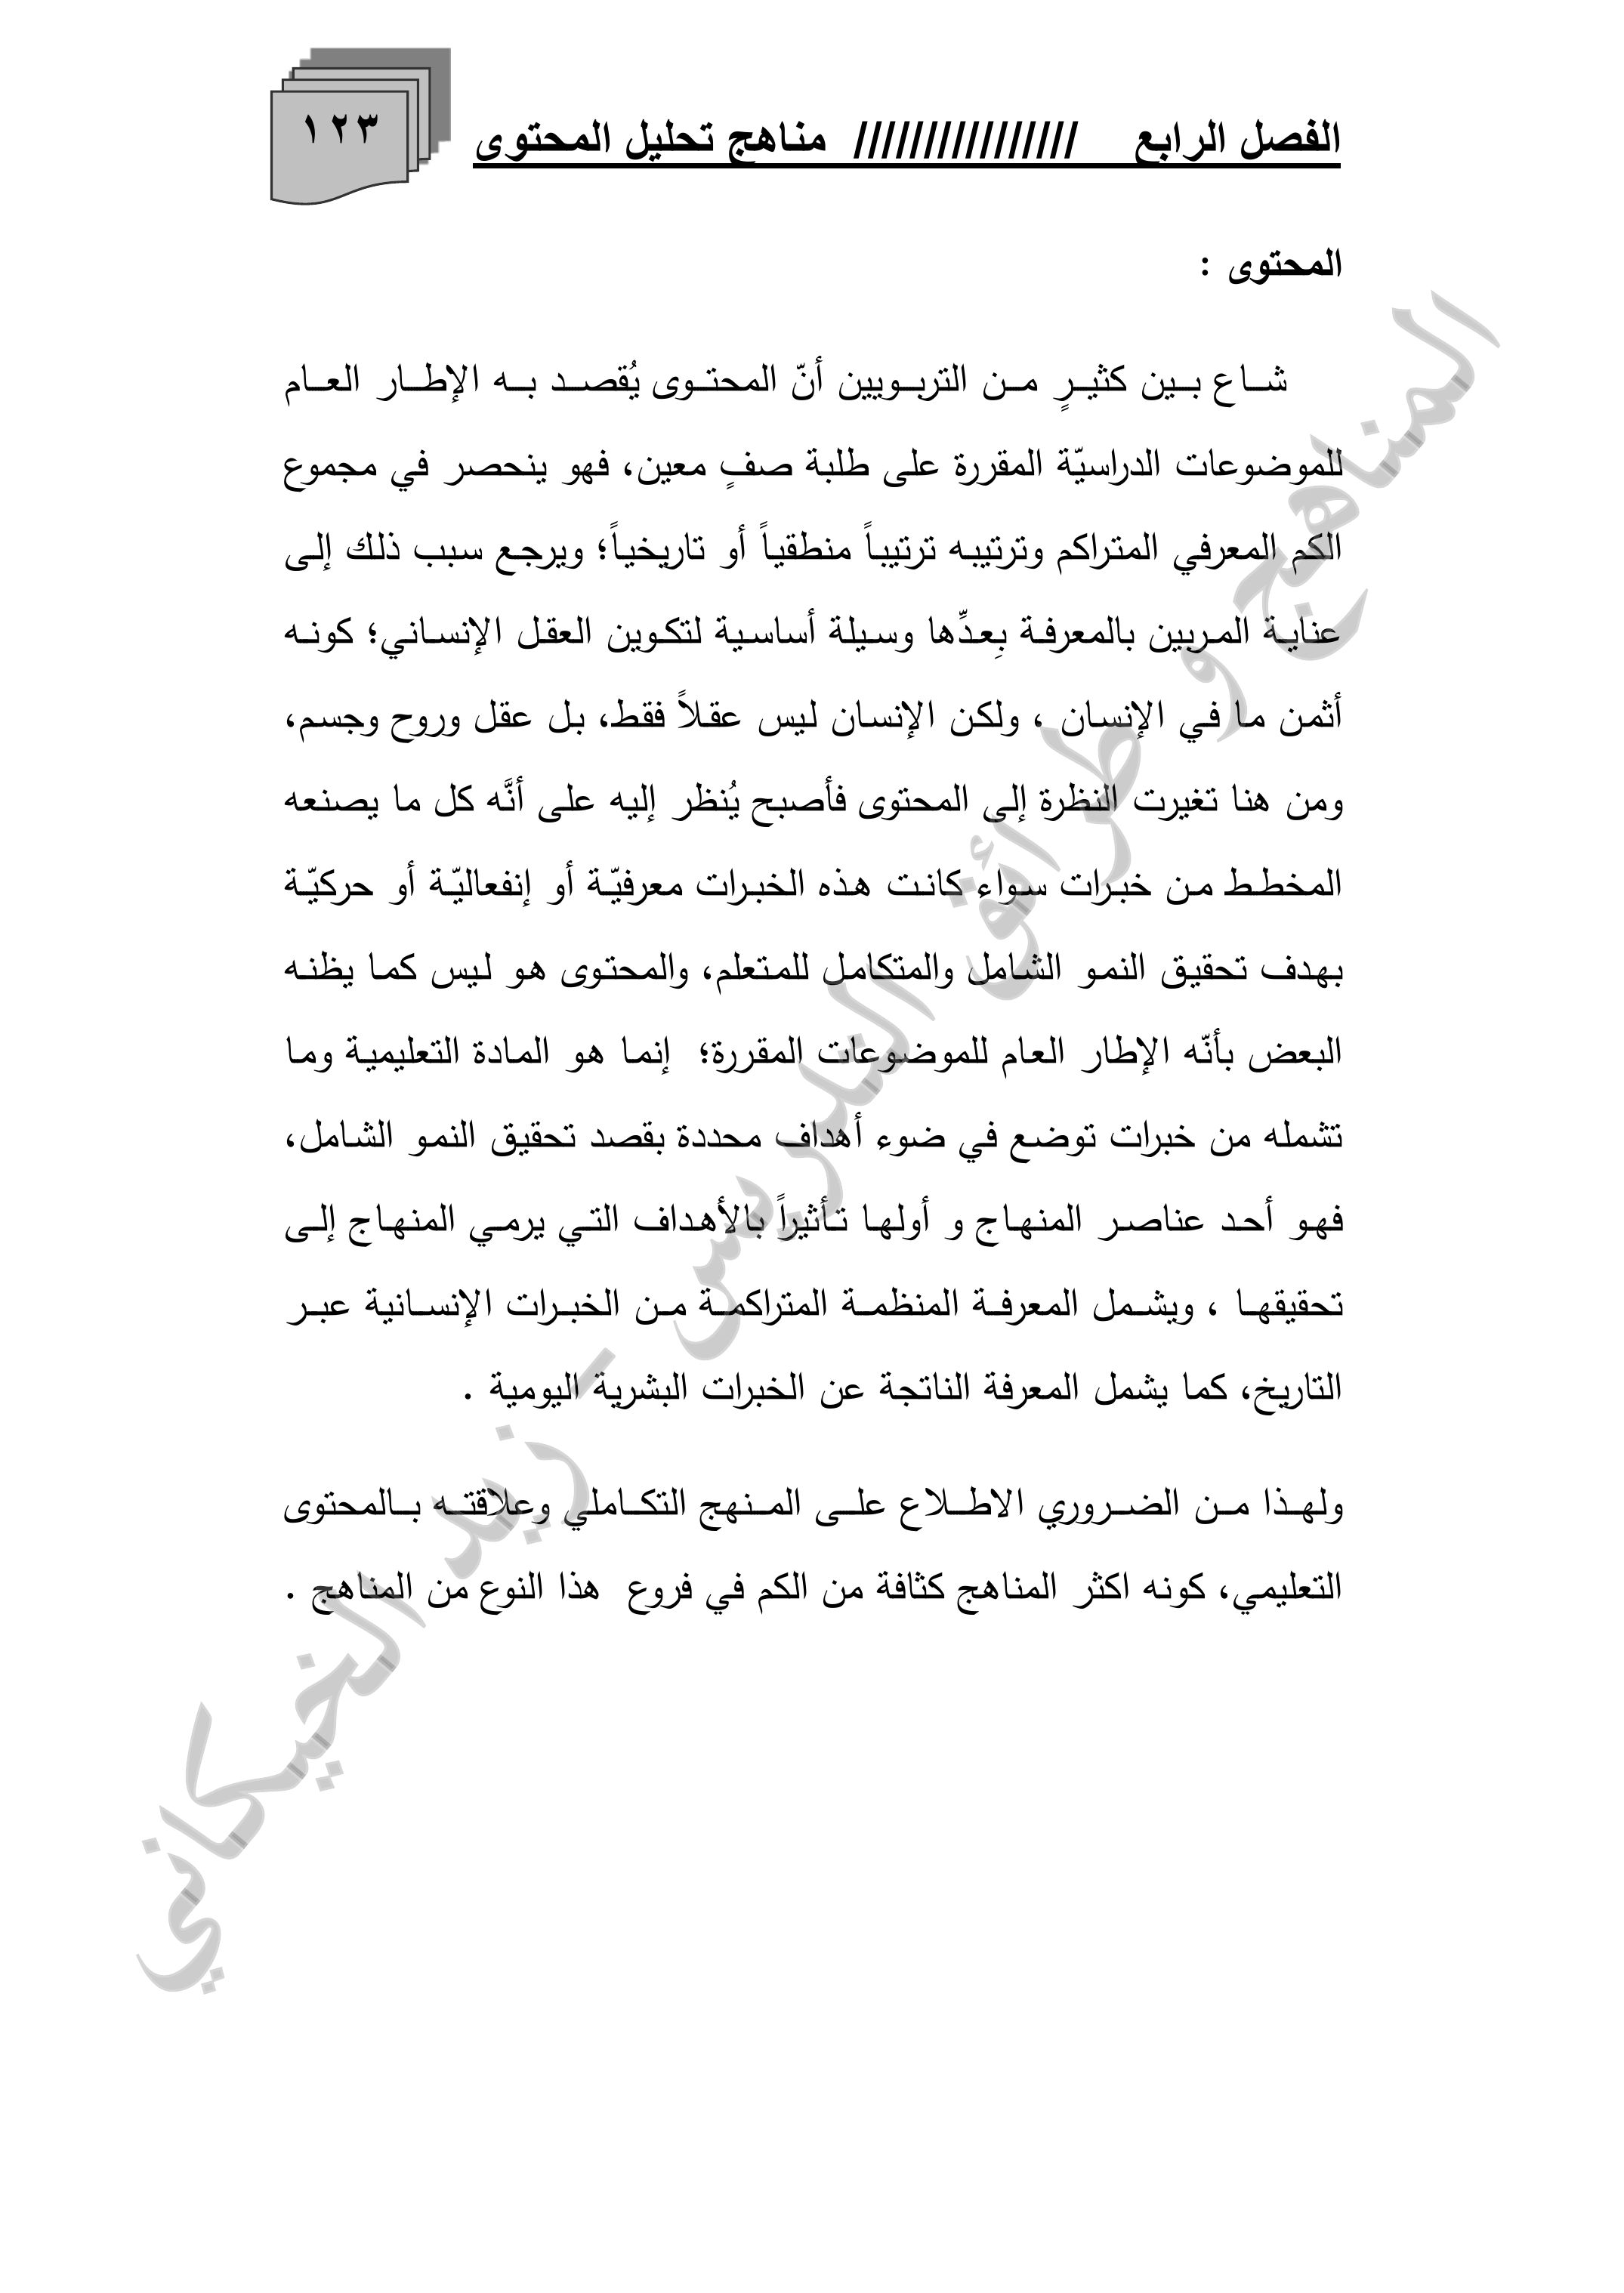 الفصل الرابع //////////////// مناهج تحليل المحتوى
١٢٣
المحتوى :
شاع بين كثيرٍ من التربويين أنّ المحتوى يُقصد به الإطار العام
للموضوعات الدراسيّة المقررة على طلبة صفٍ معين، فهو ينحصر في مجموع
الكم المعرفي المتراكم وترتيبه ترتيباً منطقياً أو تاريخياً؛ ويرجع سبب ذلك إلى
عناية المربين بالمعرفة بِعدِّها وسيلة أساسية لتكوين العقل الإنساني؛ كونه
أثمن ما في الإنسان ، ولكن الإنسان ليس عقلاً فقط، بل عقل وروح وجسم،
ومن هنا تغيرت النظرة إلى المحتوى فأصبح يُنظر إليه على أنَّه كل ما يصنعه
المخطط من خبرات سواء كانت هذه الخبرات معرفيّة أو إنفعاليّة أو حركيّة
بهدف تحقيق النمو الشامل والمتكامل للمتعلم، والمحتوى هو ليس كما يظنه
البعض بأنّه الإطار العام للموضوعات المقررة؛ إنما هو المادة التعليمية وما
تشمله من خبرات توضع في ضوء أهداف محددة بقصد تحقيق النمو الشامل،
فهو أحد عناصر المنهاج و أولها تأثيراً بالأهداف التي يرمي المنهاج إلى
تحقيقها ، ويشمل المعرفة المنظمة المتراكمة من الخبرات الإنسانية عبر
التاريخ، كما يشمل المعرفة الناتجة عن الخبرات البشرية اليومية .
ولهذا من الضروري الاطلاع على المنهج التكاملي وعلاقته بالمحتوى
التعليمي، كونه اكثر المناهج كثافة من الكم في فروع هذا النوع من المناهج .
المناهج و طرائق التدريس - زيد الخيكاني